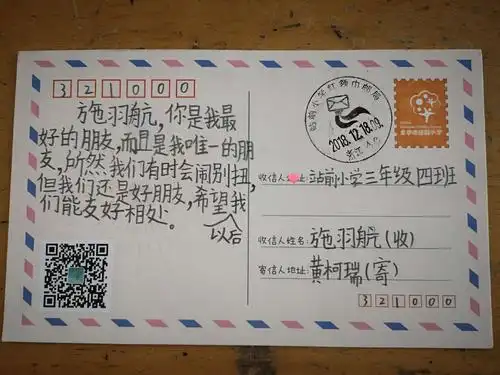 321000
施羽航，你是我最
好的朋友，而且是我唯一的朋
友，所然我们有时会闹别扭，
但我们还是好朋友，希望我
们能友好相处。
以后
站前小学红领巾邮局
2018.12.18.09
浙江
收信人地址：站前小学三年级四班
收信人姓名：施羽航（收）
寄信人地址：黄柯瑞（寄）
321000